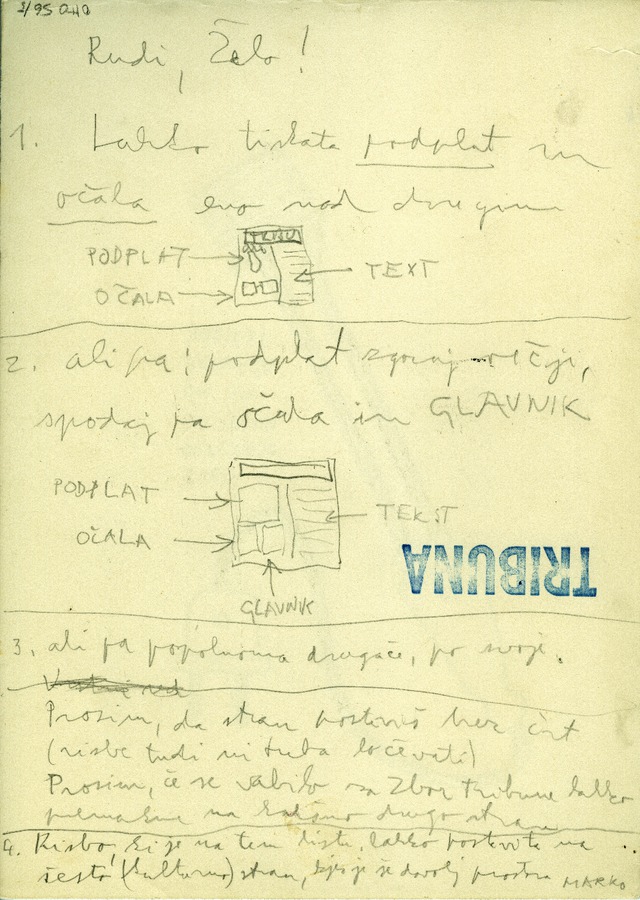 Rudi, Želo!
1. Lahko tiskata podplat in
očala eno nad drugim
PODPLAT
OČALA
TEXT
2. ali pa: podplat zgoraj večji,
spodaj pa očala in GLAVNIK
PODPLAT
OČALA
TEKST
GLAVNIK
TRIBUNA
3. ali pa popolnoma drugače, po svoje.
Prosim, da stran postaviš brez črt
(risbe tudi ni treba ločevati)
Prosim, če se vabilo za Zbor Tribune lahko
na kakšno drugo stran
4. Risbo, ki je na tem listu, lahko postavite na
šesto (kulturno) stran, kjer je dovolj prostora MARKO